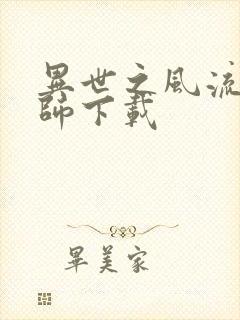 異世之風流
師下載
畢美家